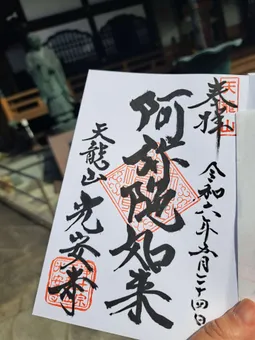 奉拝
天龍山
令和六年五月二十四日
阿弥陀如来
天龍山
光安寺